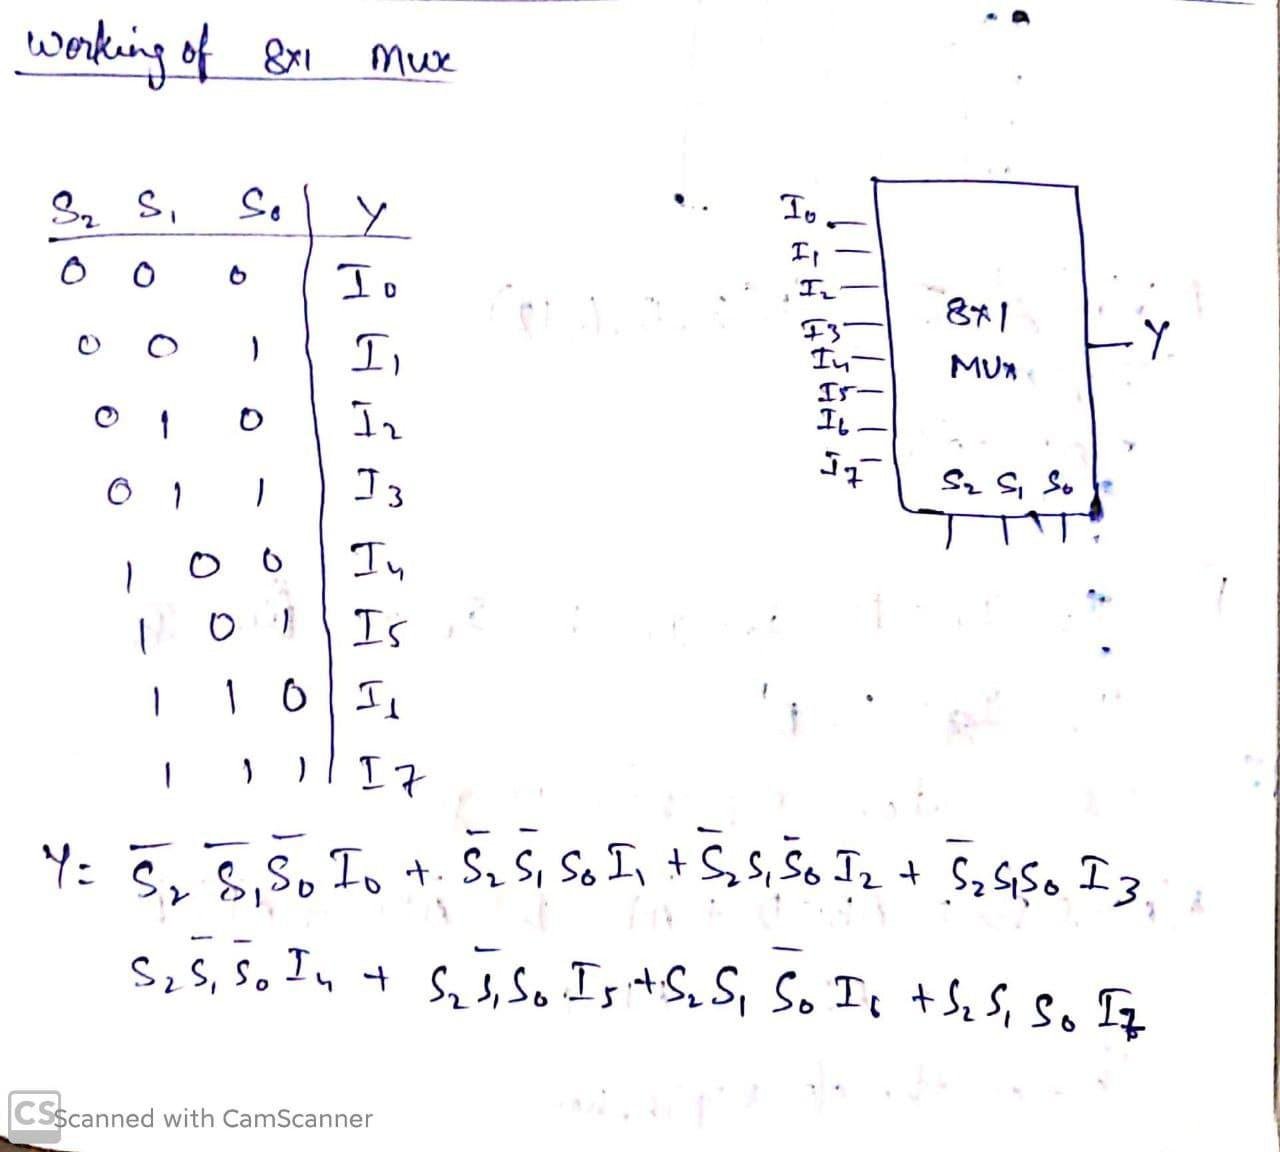 Working of 8x1 Mux
S₂ S₁ S₀ Y
0 0 0 I₀
0 0 1 I₁
0 1 0 I₂
0 1 1 I₃
1 0 0 I₄
1 0 1 I₅
1 1 0 I₁
1 1 1 I₇
I₀
I₁
I₂
I₃
I₄
I₅
I₆
I₇
8x1
MUX
Y
S₂ S₁ S₀
Y= S̅₂ S̅₁ S̅₀ I₀ + S̅₂ S̅₁ S₀ I₁ + S̅₂ S₁ S̅₀ I₂ + S̅₂ S₁ S₀ I₃
S₂ S̅₁ S̅₀ I₄ + S₂ S̅₁ S₀ I₅ + S₂ S₁ S̅₀ I₆ + S₂ S₁ S₀ I₇
CS Scanned with CamScanner